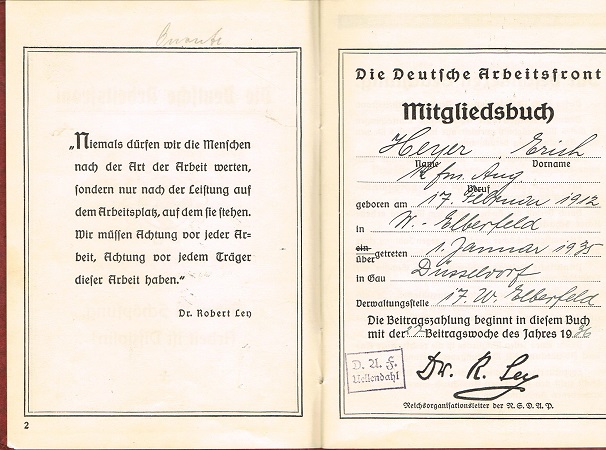 „Niemals dürfen wir die Menschen
nach der Art der Arbeit werten,
sondern nur nach der Leistung auf
dem Arbeitsplatz, auf dem sie stehen.
Wir müssen Achtung vor jeder Ar-
beit, Achtung vor jedem Träger
dieser Arbeit haben.“
Dr. Robert Ley
2
Die Deutsche Arbeitsfront
Mitgliedsbuch
Heyer Erich
Name Vorname
Kfm. Ang
Beruf
geboren am 17. Februar 1912
in W.-Elberfeld
ein-
über getreten 1. Januar 1935
in Gau Düsseldorf
Verwaltungsstelle 17. W. Elberfeld
Die Beitragszahlung beginnt in diesem Buch
mit der Beitragswoche des Jahres 1936
D. A. F.
Uellendahl
Dr. R. Ley
Reichsorganisationsleiter der N. S. D. A. P.